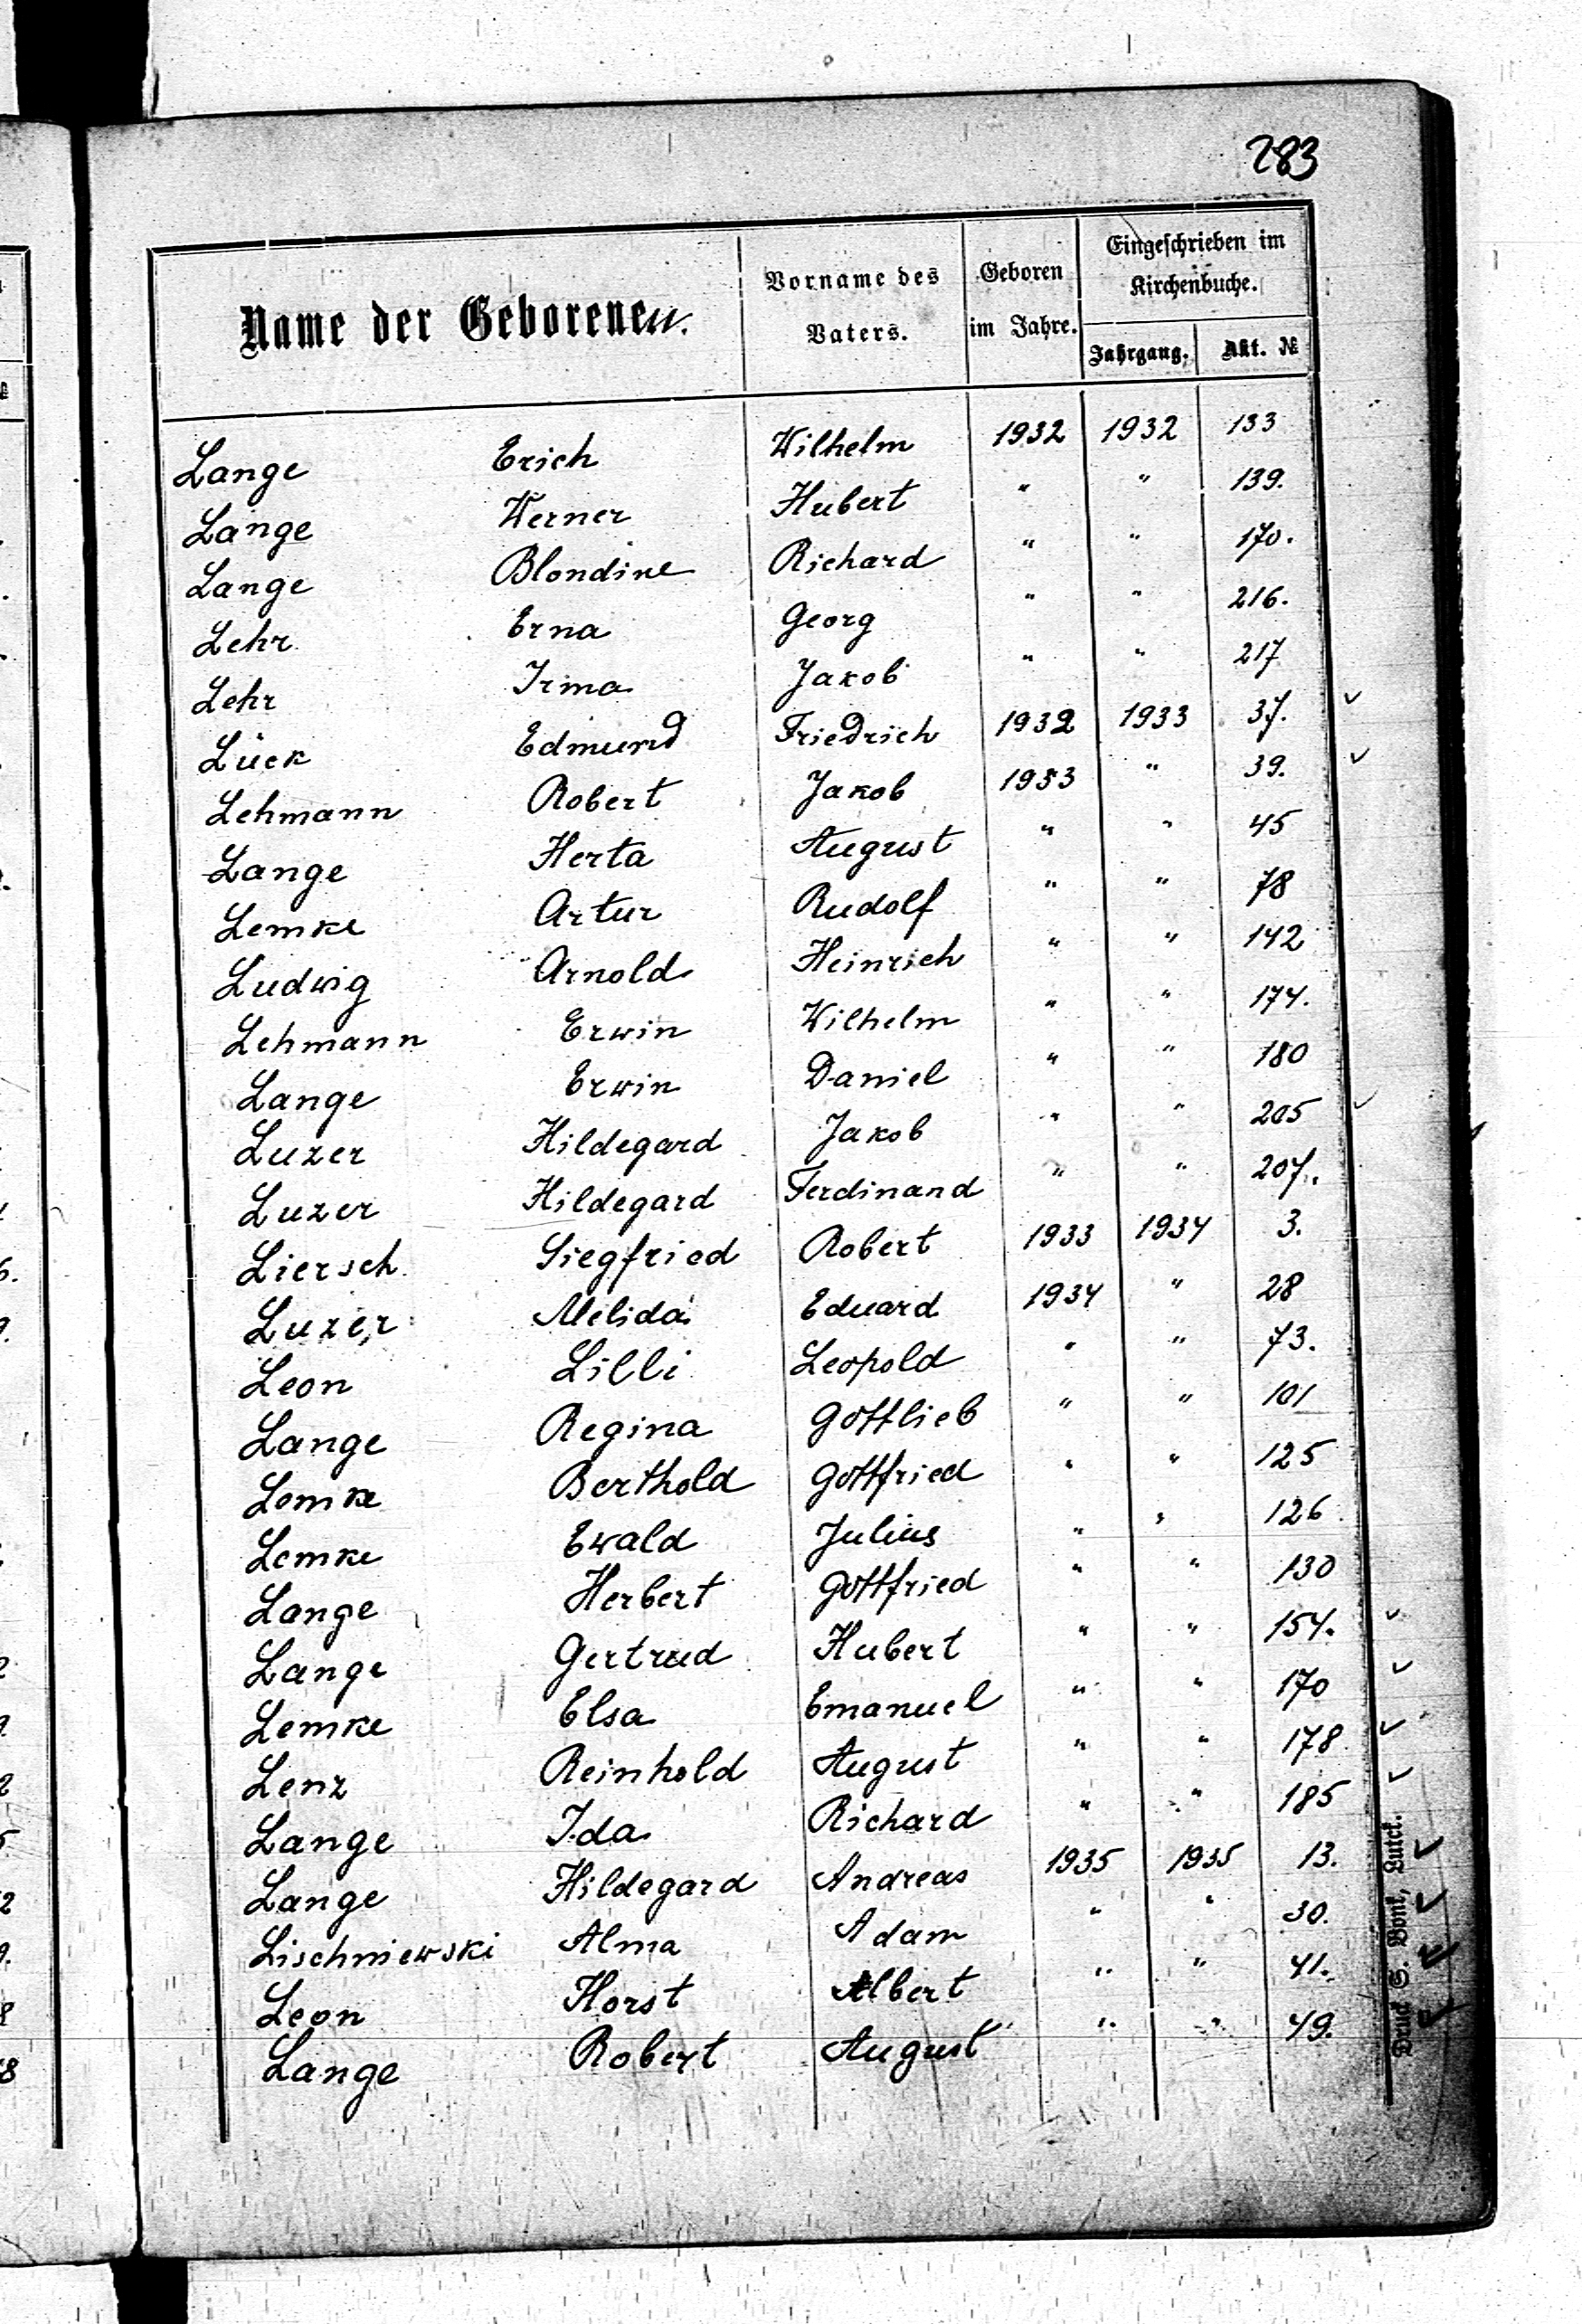 283
Name der Geborenen.
Vorname des Vaters.
Geboren im Jahre.
Eingeschrieben im Kirchenbuche.
Jahrgang. Akt. №
Lange Erich Wilhelm 1932 1932 133
Lange Werner Hubert " " 139.
Lange Blondine Richard " " 170.
Lehr Erna Georg " " 216.
Lehr Irma Jakob " " 217
Lück Edmund Friedrich 1932 1933 37. ✓
Lehmann Robert Jakob 1933 " 39. ✓
Lange Herta August " " 45
Lemke Artur Rudolf " " 78
Ludwig Arnold Heinrich " " 142
Lehmann Erwin Wilhelm " " 174.
Lange Erwin Daniel " " 180
Luzer Hildegard Jakob " " 205 ✓
Luzer Hildegard Ferdinand " " 207.
Liersch Siegfried Robert 1933 1934 3.
Luzer Melida Eduard 1934 " 28
Leon Lilli Leopold " " 73.
Lange Regina Gottlieb " " 101
Lemke Berthold Gottfried " " 125
Lemke Ewald Julius " " 126
Lange Herbert Gottfried " " 130
Lange Gertrud Hubert " " 154. ✓
Lemke Elsa Emanuel " " 170 ✓
Lenz Reinhold August " " 178 ✓
Lange Ida Richard " " 185 ✓
Lange Hildegard Andreas 1935 1935 13. ✓
Lischniewski Alma Adam " " 30. ✓
Leon Horst Albert " " 41. ✓
Lange Robert August " " 49. ✓
Druck S. Bont,